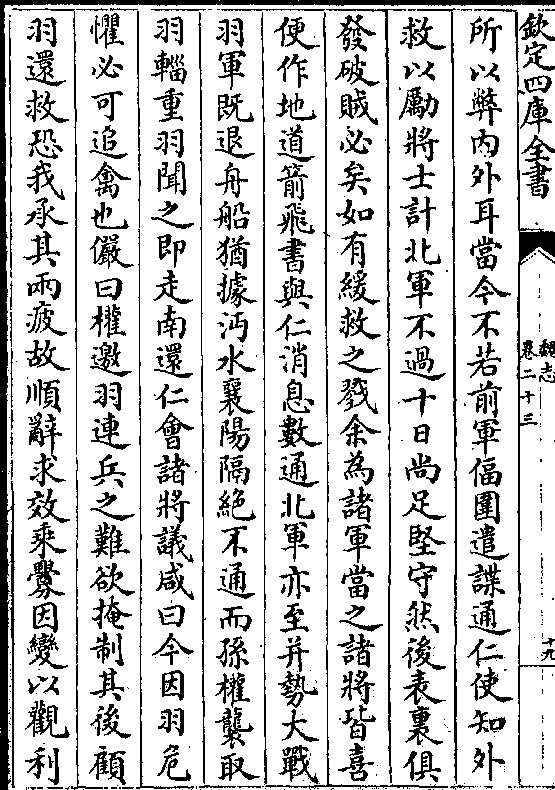 欽定四庫全書
魏志
卷二十三
十九
所以弊内外耳當今不若前軍偪圍遣諜通仁使知外
救以勵將士計北軍不過十日尚足堅守然後表裏俱
發破賊必矣如有緩救之戮余為諸軍當之諸將皆喜
便作地道箭飛書與仁消息數通北軍亦至并勢大戰
羽軍既退舟船猶據沔水襄陽隔絶不通而孫權襲取
羽輜重羽聞之即走南還仁會諸將議咸曰今因羽危
懼必可追禽也儼曰權邀羽連兵之難欲掩制其後顧
羽還救恐我承其兩疲故順辭求效乘釁因變以觀利